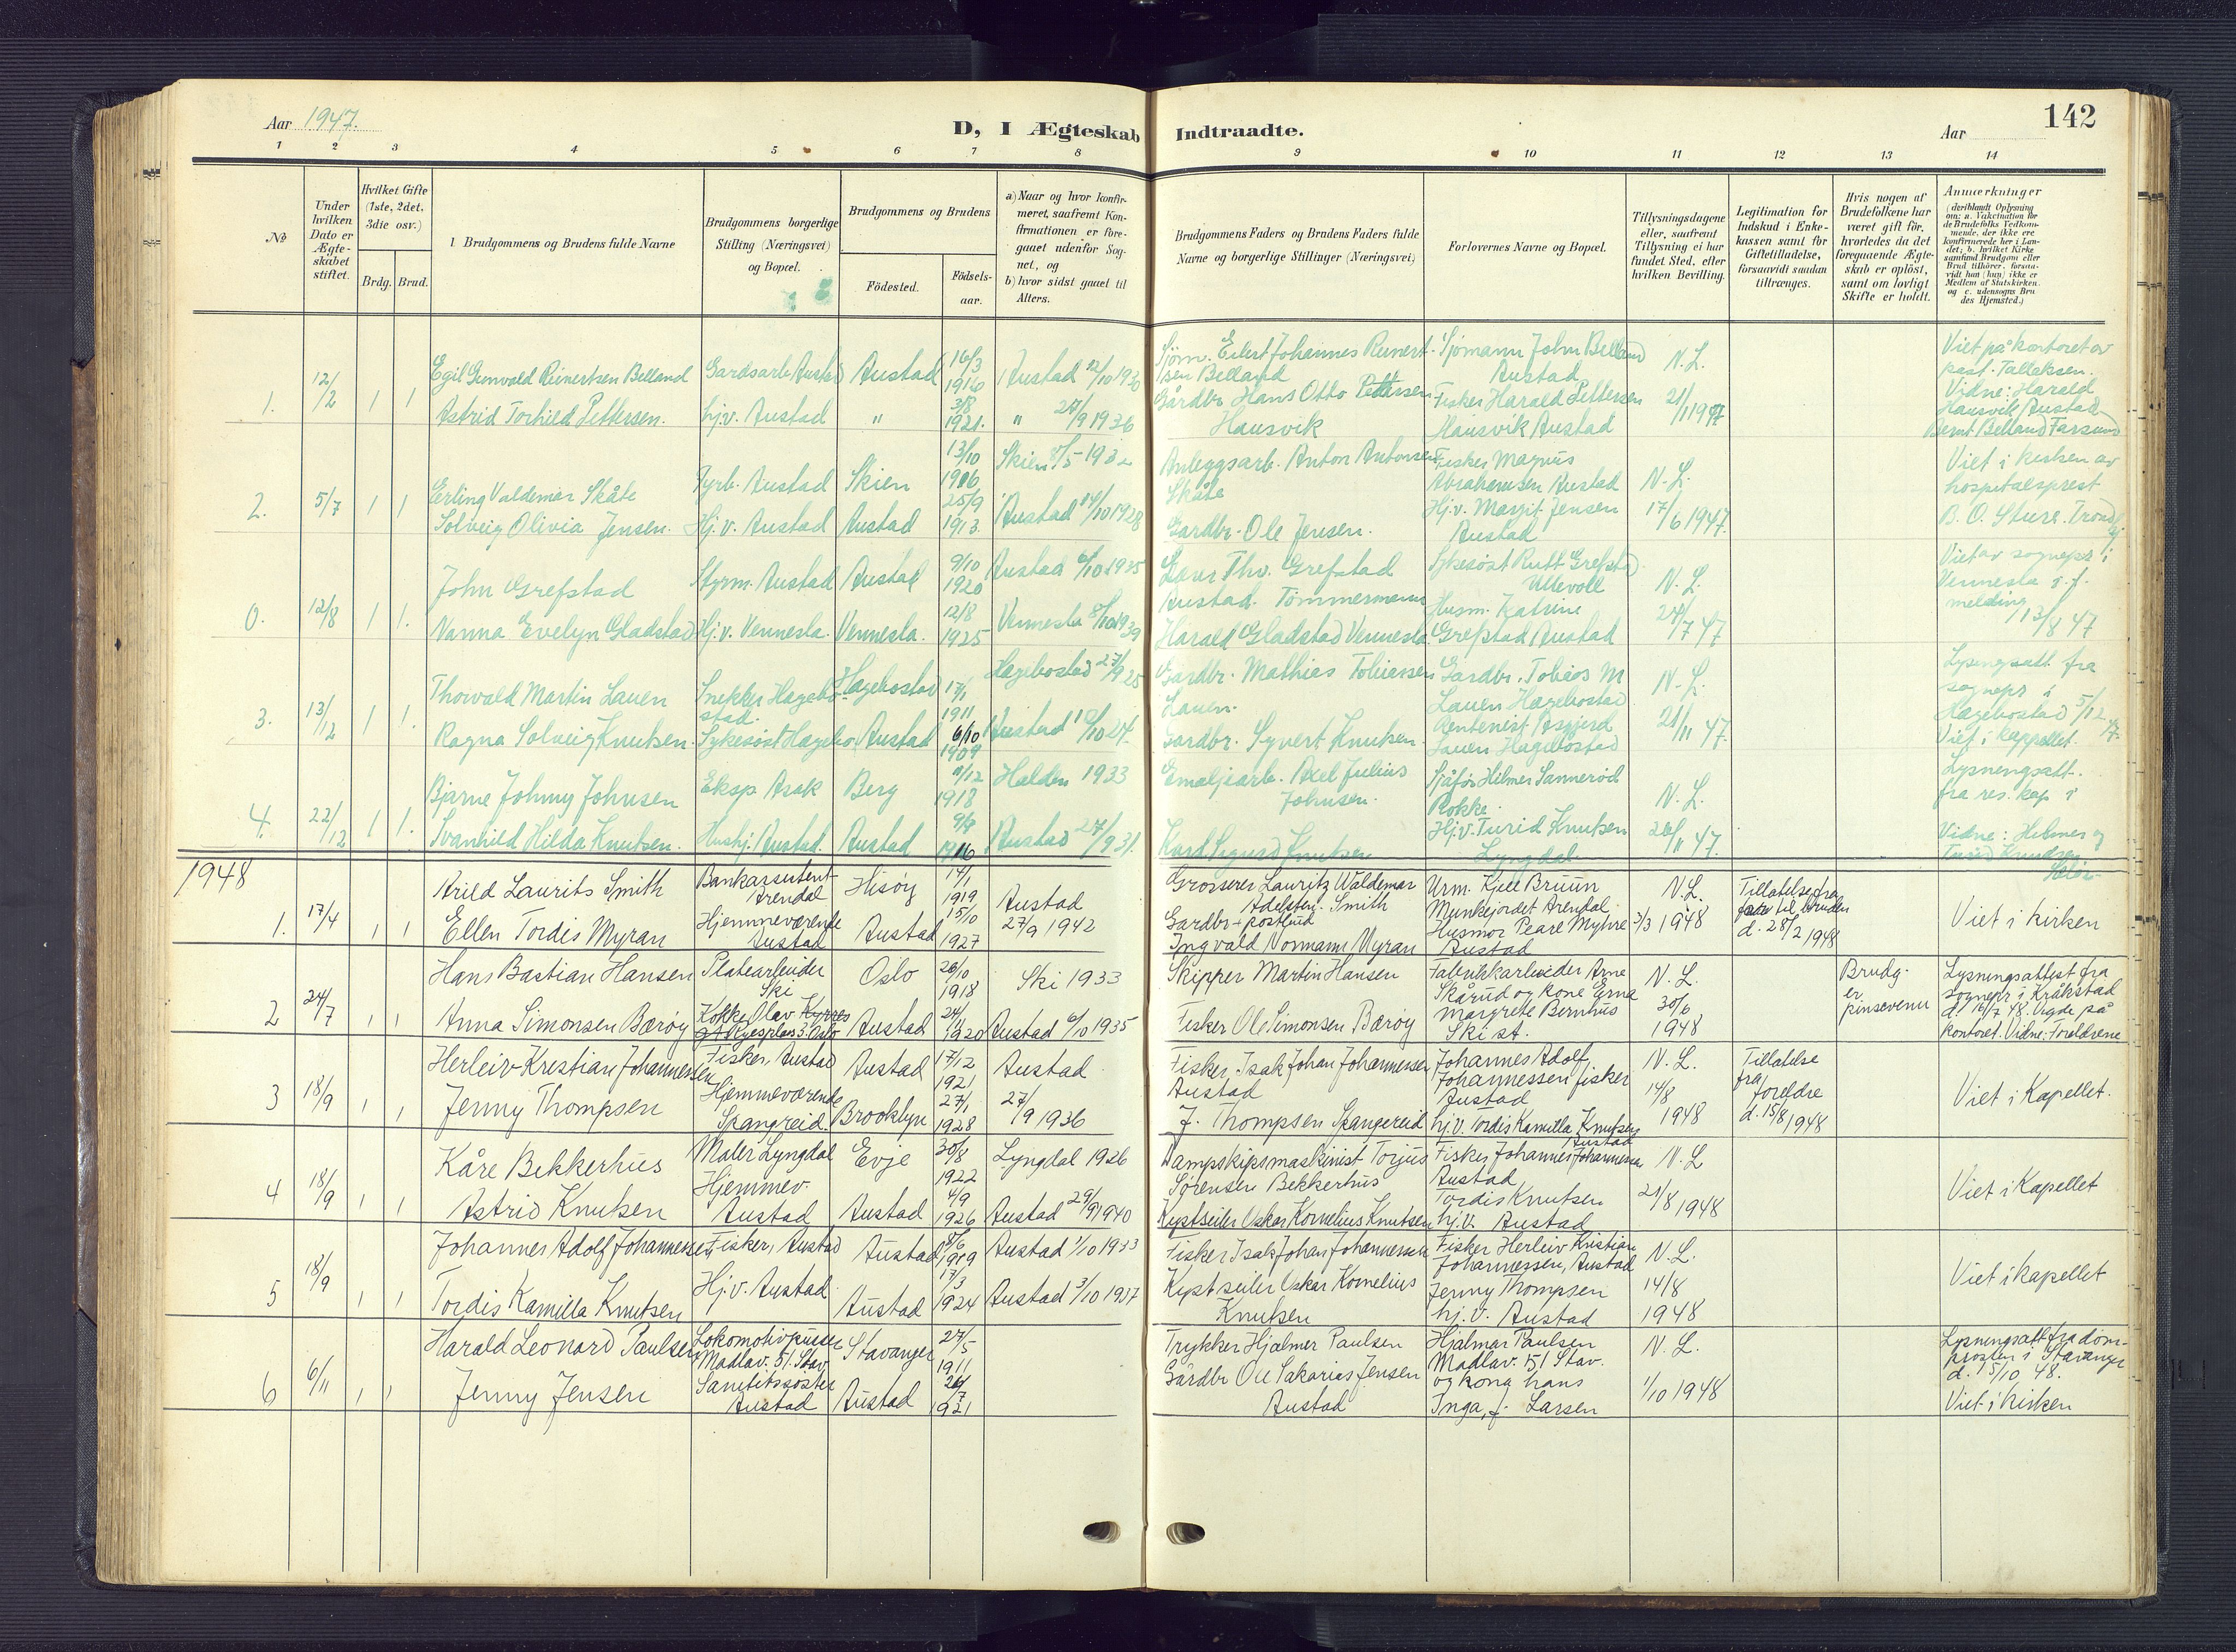 142
Aar 1947.
D, I Ægteskab Indtraadte.
Aar
1 2 3 4 5 6 7 8 9 10 11 12 13 14
No
Under hvilken Dato er Ægteskabet stiftet.
Hvilket Gifte (1ste, 2det, 3die osv.)
Brdg. Brud.
Brudgommens og Brudens fulde Navne
Brudgommens borgerlige Stilling (Næringsvei) og Bopæl.
Brudgommens og Brudens
Födested.
Födsels-aar.
a) Naar og hvor konfirmeret, saafremt Konfirmationen er foregaaet udenfor Sognet, og
b) hvor sidst gaaet til Alters.
Brudgommens Faders og Brudens Faders fulde Navne og borgerlige Stillinger (Næringsvei)
Forlovernes Navne og Bopæl.
Tillysningsdagene eller, saafremt Tillysning ei har fundet Sted, efter hvilken Bevilling.
Legitimation for Indskud i Enkekassen samt for Giftetilladelse, forsaavidt saadan tiltrænges.
Hvis nogen af Brudefolkene har været gift för, hvorledes da det foregaaende Ægteskab er oplöst, samt om lovligt Skifte er holdt.
Anmærkninger
(deriblandt Oplysning om: a. Vakcination for de Brudefolks Vedkommende, der ikke ere konfirmerede her i Landet; b. hvilket Kirkesamfund Brudgom eller Brud tilhörer, forsaavidt han (hun) ikke er Medlem af Statskirken. og c. udensogns Brudes Hjemsted.)
1. 12/2 1 1
Egil Gunvald Reinertsen Belland Gardsarb. Austad Austad 16/3 1916 Austad 12/10 1930
Astrid Torhild Pettersen. hj.v. Austad " 3/8 1921. " 27/9 1936
Sjøm. Eilert Johannes Reinertsen Belland
Gårdbr. Hans Otto Pettersen Hausvik
Sjømann John Belland Austad
Fisker Harald Pettersen Hausvik Austad
N.L. 21/1 1947
Viet på kontoret av
past. Tallaksen.
Vidne: Harald
Hausvik Austad
Bernt Belland Farsund
2. 5/7 1 1
Erling Valdemar Skåte Fyrb. Austad Skien 13/10 1906 Skien 8/5 1932
Solveig Olivia Jensen. Hj.v. Austad Austad 25/9 1913. Austad 14/10 1928
Anleggsarb. Anton Antonsen Skåte
Gardbr. Ole Jensen.
Fisker Magnus Abrahamsen Austad
Hj.v. Margit Jensen Austad
N.L. 17/6 1947.
Viet i kirken av
hospitalsprest
B. O. Sture.
0. 12/8 1 1.
John Grefstad Styrm. Austad Austad 9/10 1920 Austad 6/10 1935
Nanna Evelyn Gladstad Hj.v. Vennesla. Vennesla. 12/8 1925 Vennesla 8/10 1939
Lars Thv. Grefstad
Austad. Tømmermann
Harald Gladstad Vennesla.
Sykesøst Rutt Grefstad Ullevoll
Husm. Katrine Grefstad Austad
N.L. 24/7 47
Viet av sognepr i
Vennesla i.f.
melding 13/8 47
3. 13/12 1 1.
Thorvald Martin Lauen Snekker Hægebostad. Hægebostad 17/1 1911 Hægebostad 27/9 25
Ragna Solveig Knutsen. Sykesøst Hægebo. Austad 6/10 1909 Austad 10/10 24
Gardbr. Mathias Tobiassen Lauen.
Gardbr. Syvert Knutsen.
Gardbr. Tobias M Lauen Hægebostad
Lauen Hægebostad
N.L. 21/11 47.
Lysningsatt. fra
sognepr i
Hægebostad 5/12
Viet i kappellet.
4. 22/12 1 1.
Bjarne Johnny Johnsen Eksp Asak Berg 9/12 1918 Halden 1933
Svanhild Hilda Knutsen. Hushj. Austad. Austad 1916 Austad 27/9 31.
Emaljearb. Axel Julius Johnsen.
Karl Sigurd Knutsen
Sjåfør Hilmer Sannerød Rokke.
Hj.v. Turid Knutsen Lyngdal
N.L. 26/11 47.
Lysningsatt.
fra res. kap i
Vidne: Helmer og
Turid Knudsen.
1948
1. 17/4 1 1
Arild Laurits Smith Bankassistent Arendal Hisøy 14/1 1919
Ellen Tordis Myran Hjemmeværende Austad Austad 15/10 1927 Austad 27/9 1942
Grosserer Lauritz Waldemar Adelsten Smith
Gardbr + postbud Ingvald Normann Myran
Urm. Kjell Bruun Munkejordet Arendal
Husmor Peare Myhre Austad
N.L. 3/3 1948
Tillatelse fra far til bruden d. 28/2 1948
Viet i kirken
2 24/7 1 1
Hans Bastian Hansen Platearbeider Ski Oslo 26/10 1918 Ski 1933
Anna Simonsen Bærøy Kokke Olav Kyrres gt Ryesplass 3. Oslo Austad 24/1 1920 Austad 6/10 1935
Skipper Martin Hansen
Fisker Ole Simonsen Bærøy
Fabrikkarbeider Arne Skårud og kone Erna Margrete Bernhus Ski st.
N.L. 30/6 1948
Brudg. er pinsevenn
Lysningsattest fra
sognepr i Kråkstad
d. 16/7 48. Vigde på
kontoret. Vidne: Foreldrene
3 18/9 1 1
Herleiv Kristian Johannessen Fisker, Austad Austad 17/12 1921 Austad
Jenny Thompsen Hjemmeværende Spangreid. Brooklyn 27/1 1928 27/9 1936
Fisker, Isak Johan Johannessen Austad
J. Thompsen Spangereid
Johannes Adolf Johannessen fisker Austad
hj.v. Tordis Kamilla Knutsen Austad
N.L. 14/8 1948
Tillatelse fra foreldre d. 15/8 1948
Viet i Kapellet.
4 18/9 1 1
Kåre Bekkerhus Maler Lyngdal Evje 30/8 1922 Lyngdal 1926
Astrid Knutsen Hjemmev. Austad Austad 4/9 1926 Austad 29/9 1940
Dampskipsmaskinist Torjus Sørensen Bekkerhus
Kystseiler Oskar Kornelius Knutsen
Fisker Johannes Johannessen Austad
Tordis Knutsen hj.v. Austad
N.L. 21/8 1948
Viet i Kapellet
5 18/9 1 1
Johannes Adolf Johannessen, Fisker, Austad Austad 8/6 1919 Austad 1/10 1933
Tordis Kamilla Knutsen Hj.v. Austad Austad 17/3 1924 Austad 3/10 1937
Fisker Isak Johan Johannessen
Kystseiler Oskar Kornelius Knutsen
Fisker Herleiv Kristian Johannessen, Austad
Jenny Thompsen hj.v. Austad
N.L. 14/8 1948
Viet i kapellet
6 6/11 1 1
Harald Leonard Paulsen Lokomotivpusser Madlav. 51. Stav. Stavanger 27/5 1911
Jenny Jensen Sanitetssøster Austad Austad 26/7 1921
Trykker Hjalmer Paulsen
Gårdbr Ole Sakarias Jensen Austad
Hjalmar Paulsen Madlav. 151 Stav.
og kona hans Inga, f. Larsen
N.L. 1/10 1948
Lysningsatt. fra dom-
prosten i Stavanger
d. 15/10 48.
Viet i kirken